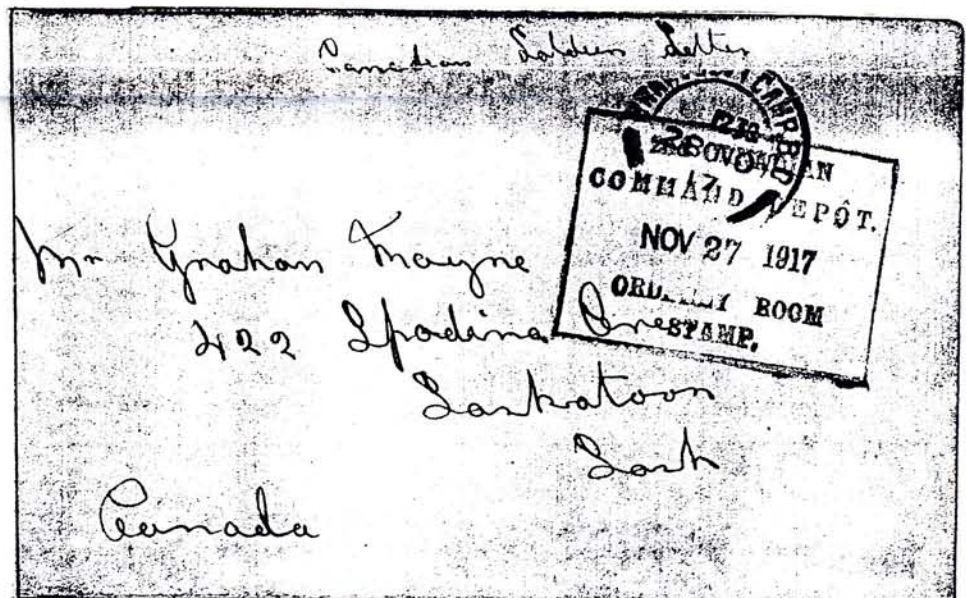 Canadian Soldiers Letter
CAMP
28 NO
17
COMMAND DEPÔT.
NOV 27 1917
ROOM
STAMP.
Mr Graham Mayne
422 Spadina Cres
Saskatoon
Sask
Canada